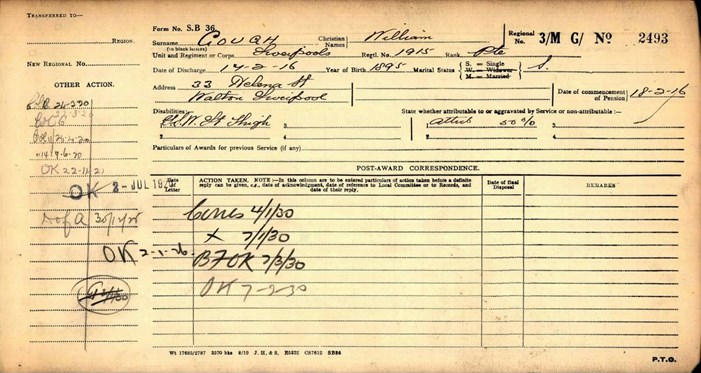 TRANSFERRED TO—
REGION.
NEW REGIONAL No.
OTHER ACTION.
OK 22-11-21
OK 2-JUL 192
OK 2-1-26.
Form No. S.B 36
Surname GOUGH Christian Names William Regional No. 3/M G/ No 2493
(in block letters)
Unit and Regiment or Corps. Liverpools Regtl. No. 1915 Rank Pte
Date of Discharge 14-2-16 Year of Birth 1895 Marital Status S. = Single W. = Widower M. = Married S.
Address 33 Helena St
Walton Liverpool
Date of commencement of Pension 18-2-16
Disabilities: State whether attributable to or aggravated by Service or non-attributable:
1 G.S.W. Lt Thigh 3 1 Attrib 50% 3
2 4 2 4
Particulars of Awards for previous Service (if any)
POST-AWARD CORRESPONDENCE.
Date of Letter
ACTION TAKEN. NOTE:—In this column are to be entered particulars of action taken before a definite reply can be given, e.g., date of acknowledgment, date of reference to Local Committee or to Records, and date of their reply.
Date of final Disposal
REMARKS
4/1/30
x 7/1/30
BFOK 7/3/30
OK 7-2-30
P.T.O.